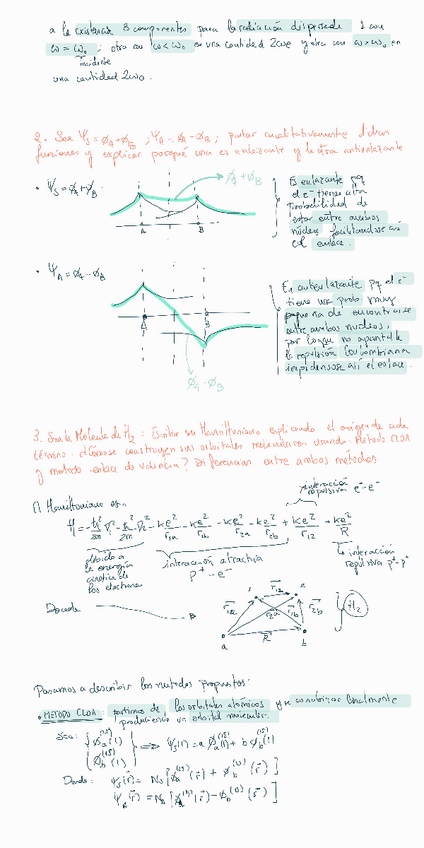 a la existencia 3 componentes para la radiación dispersada 1 con
ω = ω₀ ; otra con ω < ω₀ en una cantidad 2ω₀ y otra con ω > ω₀ en
incidente
una cantidad 2ω₀.
2. Sea Ψs = ϕA + ϕB ; ΨA = ϕA - ϕB ; pintar cualitativamente dichas
funciones y explicar porqué una es enlazante y la otra antienlazante
• Ψs = ϕA + ϕB.
ϕA + ϕB
A B
Es enlazante pq
el e⁻ tiene alta
probabilidad de
estar entre ambos
núcleos, facilitandose así
el enlace.
• ΨA = ϕA - ϕB
A B
ϕA - ϕB
Es antienlazante pq el e⁻
tiene una prob muy
pequeña de encontrarse
entre ambos núcleos,
por lo que no apantalla
la repulsión Coulombiana
impidendose así el enlace.
3. Sea la Molécula de H₂ : Escribir su Hamiltoniano explicando el origen de cada
término. ¿Cómo se construyen sus orbitales moleculares usando método CLOA
y método enlace de valencia? Diferencias entre ambos métodos
El Hamiltoniano es:
interacción
repulsiva e⁻-e⁻
H = -ħ²/2m ∇₁² - ħ²/2m ∇₂² - ke²/r1a - ke²/r1b - ke²/r2a - ke²/r2b + ke²/r12 + ke²/R
debido a
la energía
cinética de
los electrones
interacción atractiva
p⁺ - e⁻
interacción
repulsiva p⁺-p⁺
Donde
1 r12 2
r1a r2a r1b r2b
a R b
H₂
Pasamos a describir los metodos propuestos:
• METODO CLOA: partimos de los orbitales atómicos y se combinan linealmente
produciendo un orbital molecular.
Sea: { ϕa(1s)(1) ϕb(1s)(1) } ⇒ Ψs(1) = a ϕa(1s)(1) + b ϕb(1s)(1)
Donde: Ψs(r) = Ns [ϕa(1s)(r) + ϕb(1s)(r)]
ΨA(r) = NA [ϕa(1s)(r) - ϕb(1s)(r)]